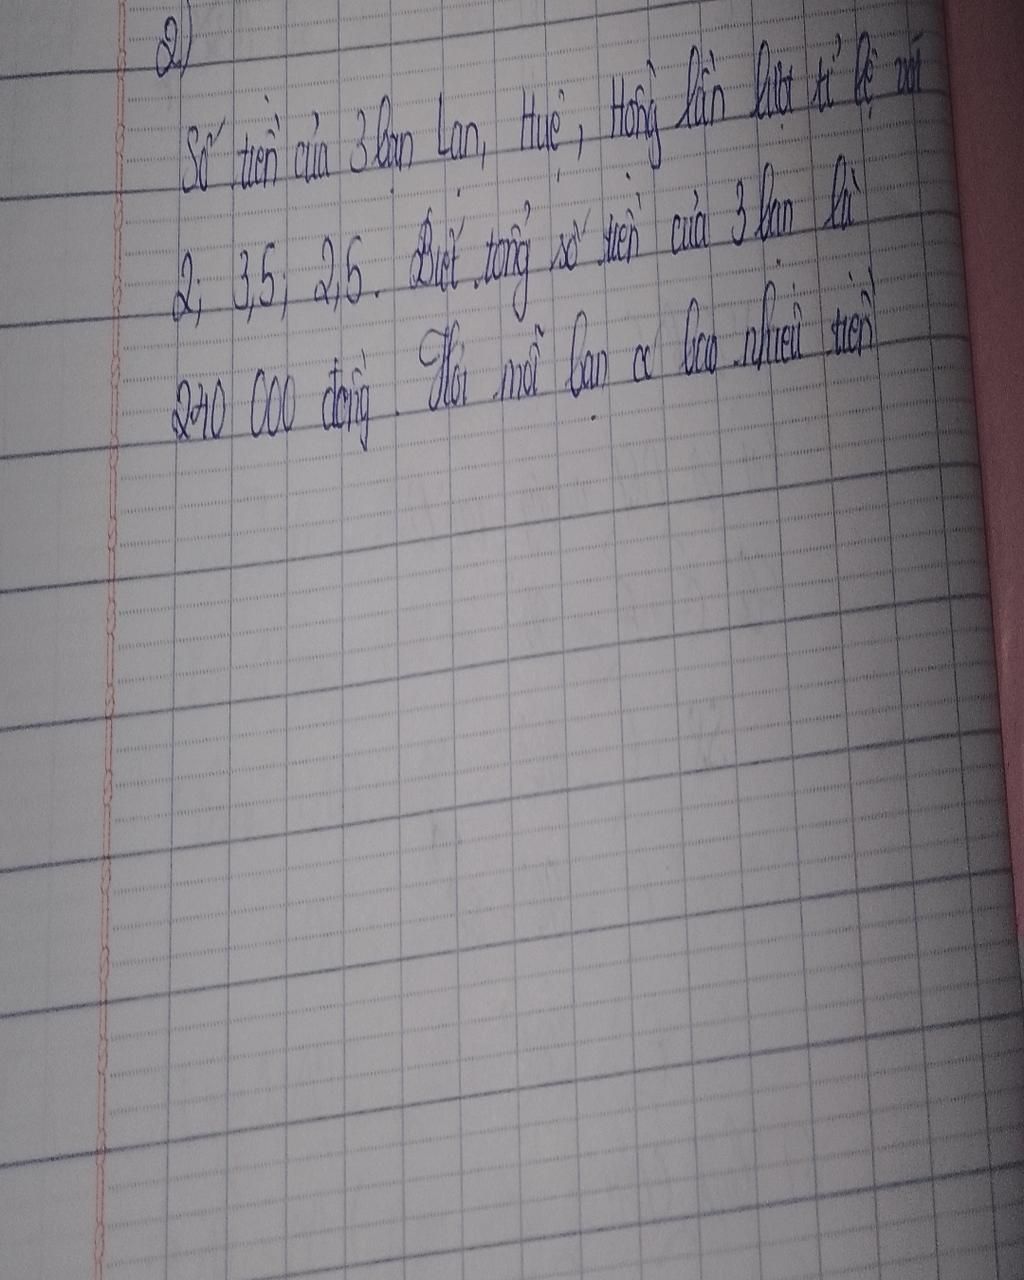 2)
Số tiền của 3 bạn Lan, Huệ, Hồng lần lượt tỉ lệ với
2; 3,5; 2,5. Biết tổng số tiền của 3 bạn là
240 000 đồng. Hỏi mỗi bạn có bao nhiêu tiền